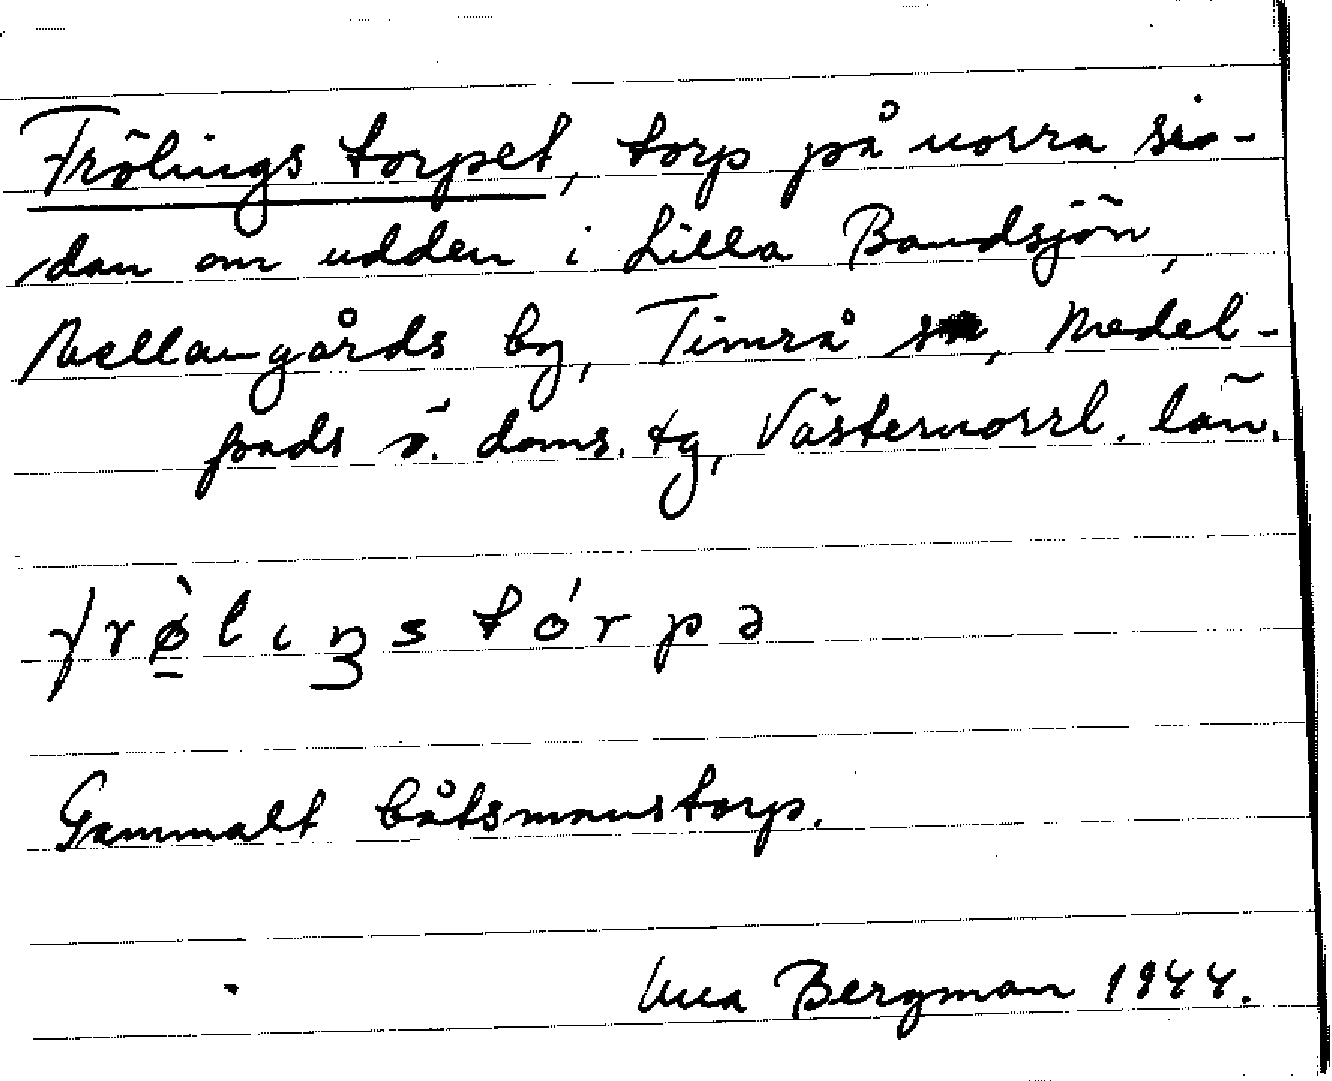 Frölings torpet, torp på norra si-
dan om udden i Lilla Bandsjön,
Mellangårds by, Timrå sn, Medel-
pads ö. doms. tg, Västernorrl. län.
frø̀lıŋs tórpə
Gammalt båtsmanstorp.
Bergman 1944.